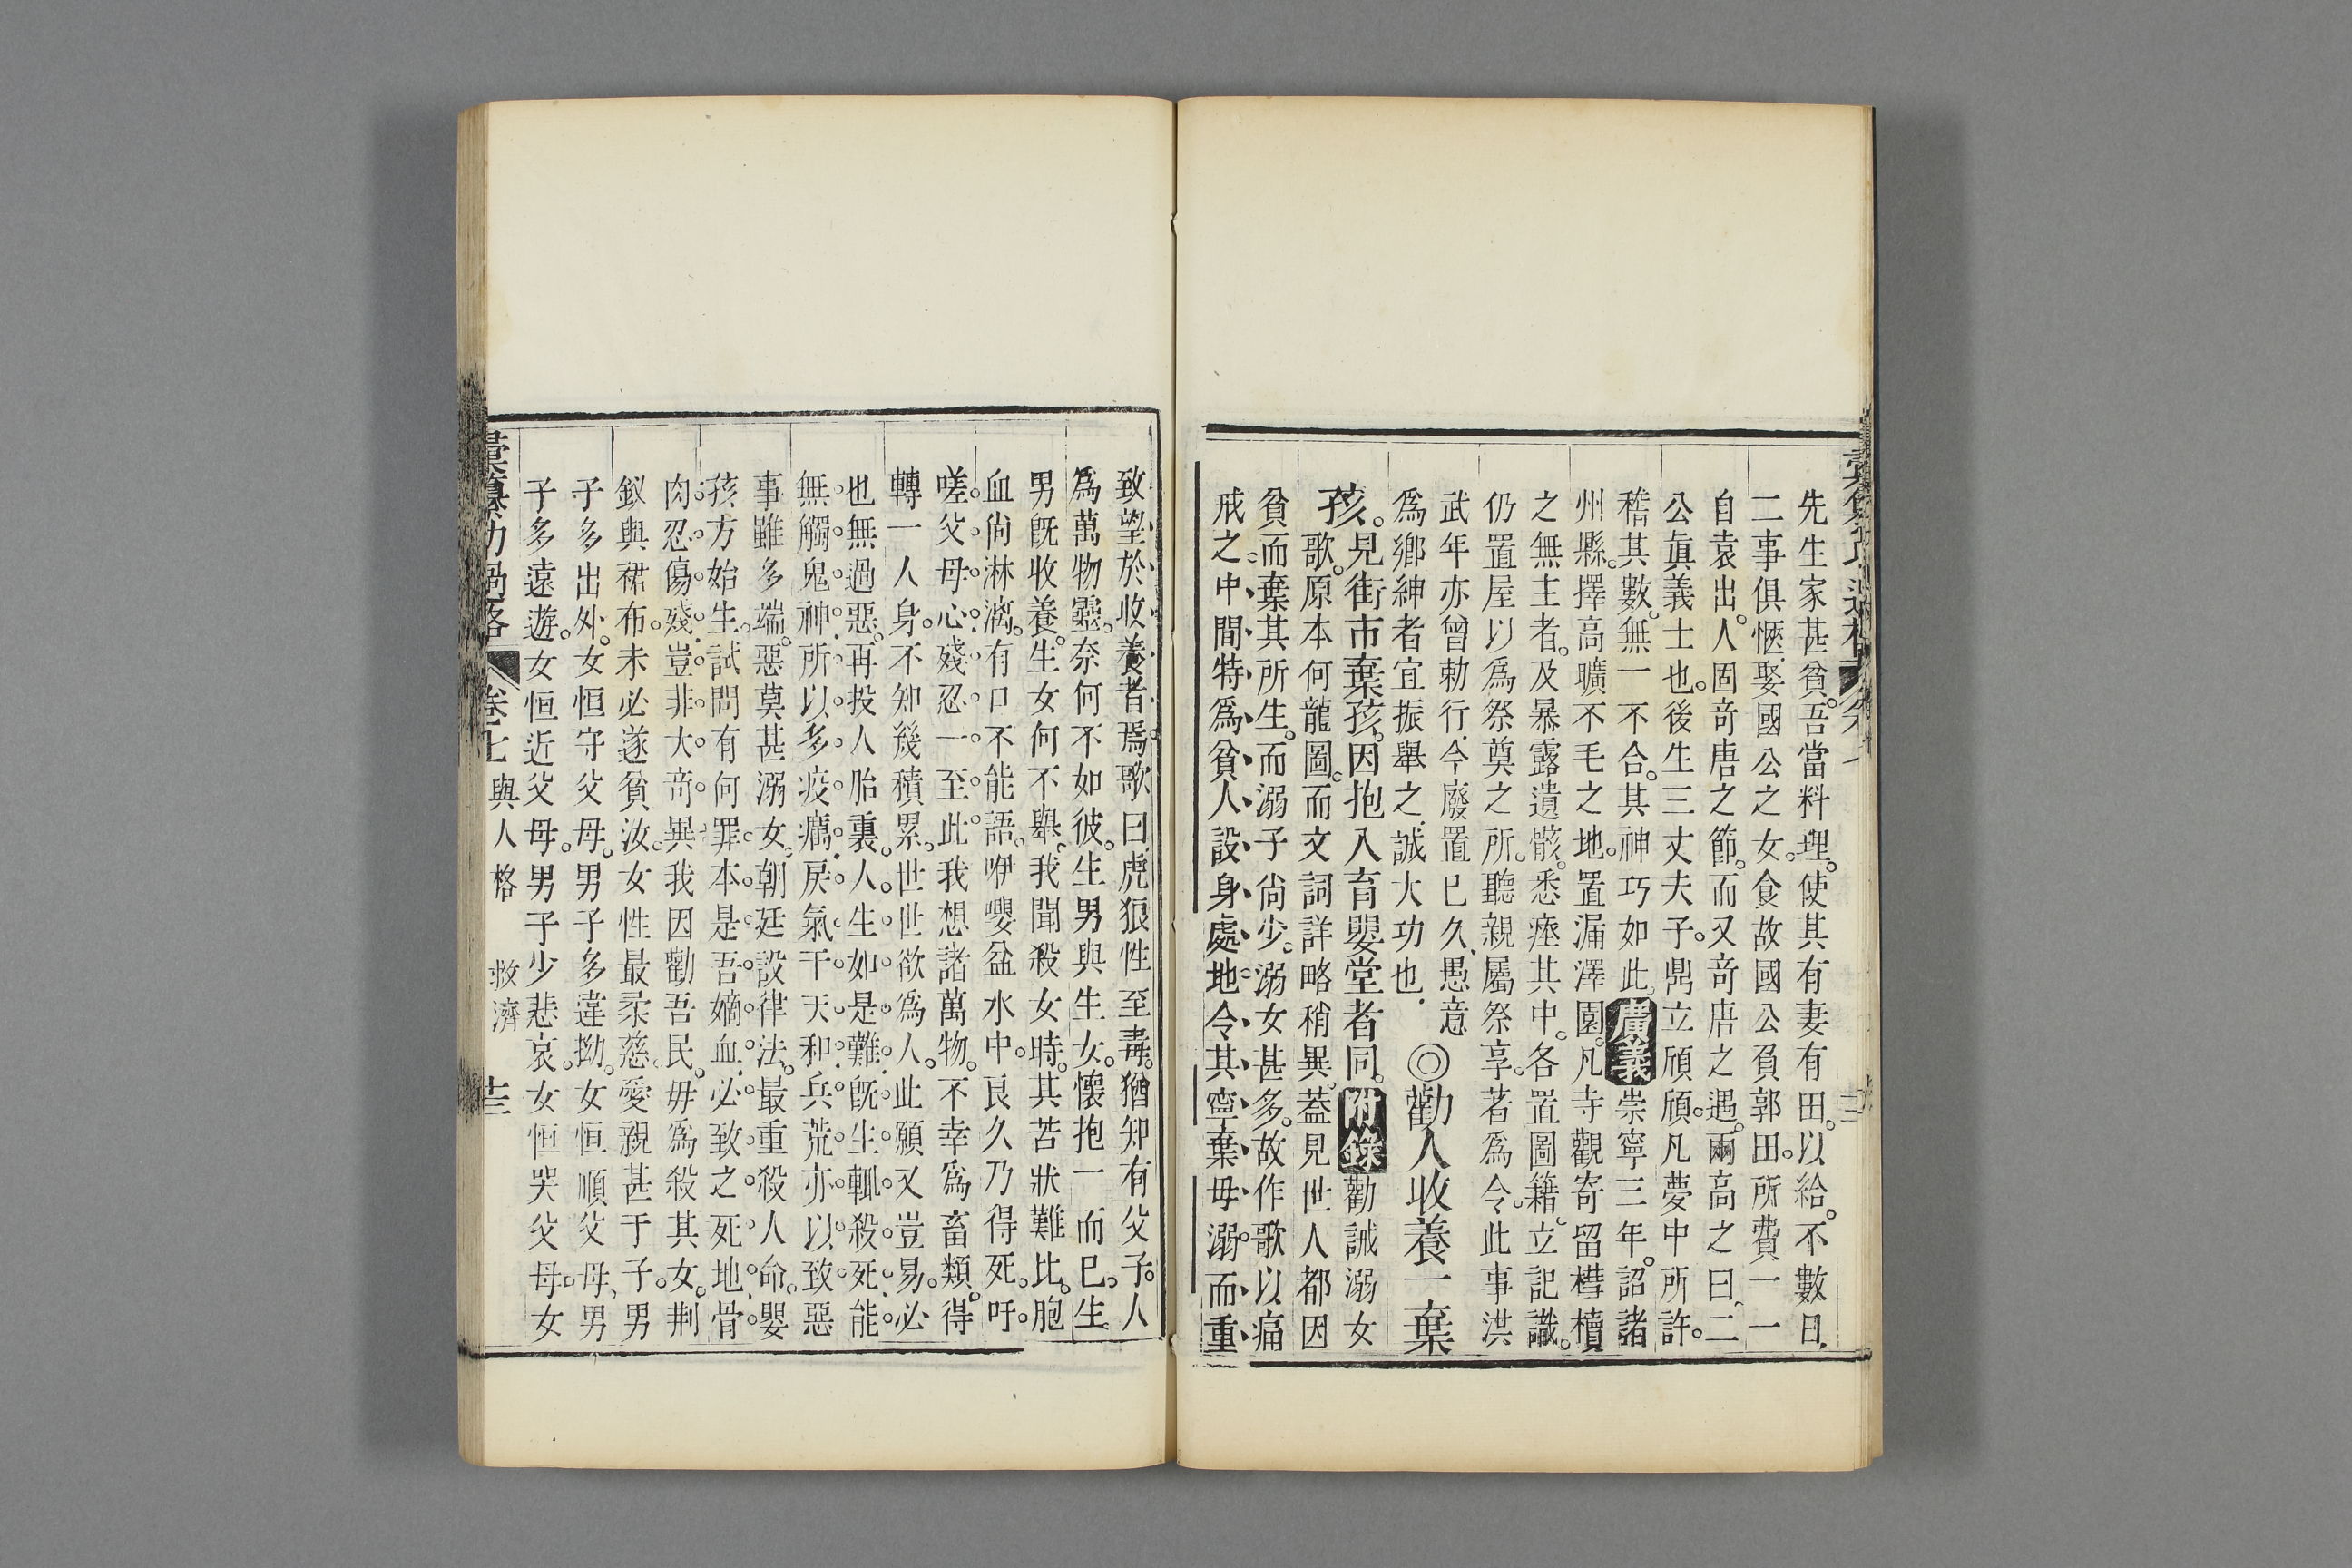 先生家甚貧。吾當料理。使其有妻有田。以給。不數日、
二事俱愜、娶國公之女。食故國公負郭田。所費一一
自袁出。人固奇唐之節。而又奇唐之遇。爾高之曰、二
公眞義士也。後生三丈夫子。鼎立頎頎。凡夢中所許。
稽其數。無一不合。其神巧如此。廣義崇寧三年。詔諸
州縣。擇高曠不毛之地。置漏澤園。凡寺觀寄留槥櫝
之無主者。及暴露遺骸。悉瘞其中。各置圖籍。立記識。
仍置屋以爲祭奠之所。聽親屬祭享。著爲令。此事洪
武年亦曾勅行、今廢置已久、愚意
爲鄉紳者宜振舉之、誠大功也、◎勸人收養一棄
孩。見街市棄孩。因抱入育嬰堂者同。附錄勸誡溺女
歌。原本何龍圖。而文詞詳略稍異。蓋見世人都因
貧而棄其所生。而溺子尙少。溺女甚多。故作歌以痛
戒之中間特爲貧人設身處地令其寧棄毋溺。而重
致望於收養者焉歌曰、虎狼性至毒。猶知有父子。人
爲萬物靈。奈何不如彼。生男與生女。懷抱一而已。生
男旣收養。生女何不舉。我聞殺女時。其苦狀難比。胞
血尙淋漓。有口不能語。咿嚶盆水中。良久乃得死。吁。
嗟父母心。殘忍一至此。我想諸萬物。不幸爲畜類。得
轉一人身。不知幾積累。世世欲爲人。此願又豈易。必
也無過惡。再投人胎裏。人生如是難。旣生輒殺死。能
無觸鬼神。所以多疫癘。戾氣干天和。兵荒亦以致惡
事雖多端。惡莫甚溺女。朝廷設律法。最重殺人命。嬰
孩方始生。試問有何罪。本是吾嫡血。必致之死地。骨
肉忍傷殘。豈非大奇異。我因勸吾民。毋爲殺其女。荆
釵與裙布。未必遂貧汝。女性最柔慈。愛親甚于子。男
子多出外。女恒守父母。男子多違拗。女恒順父母、男
子多遠遊。女恒近父母。男子少悲哀。女恒哭父母。女
彙纂功過格 卷七 與人格 救濟 十三